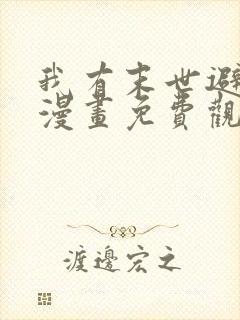 我有末世避
漫畫免費觀
渡邊宏之